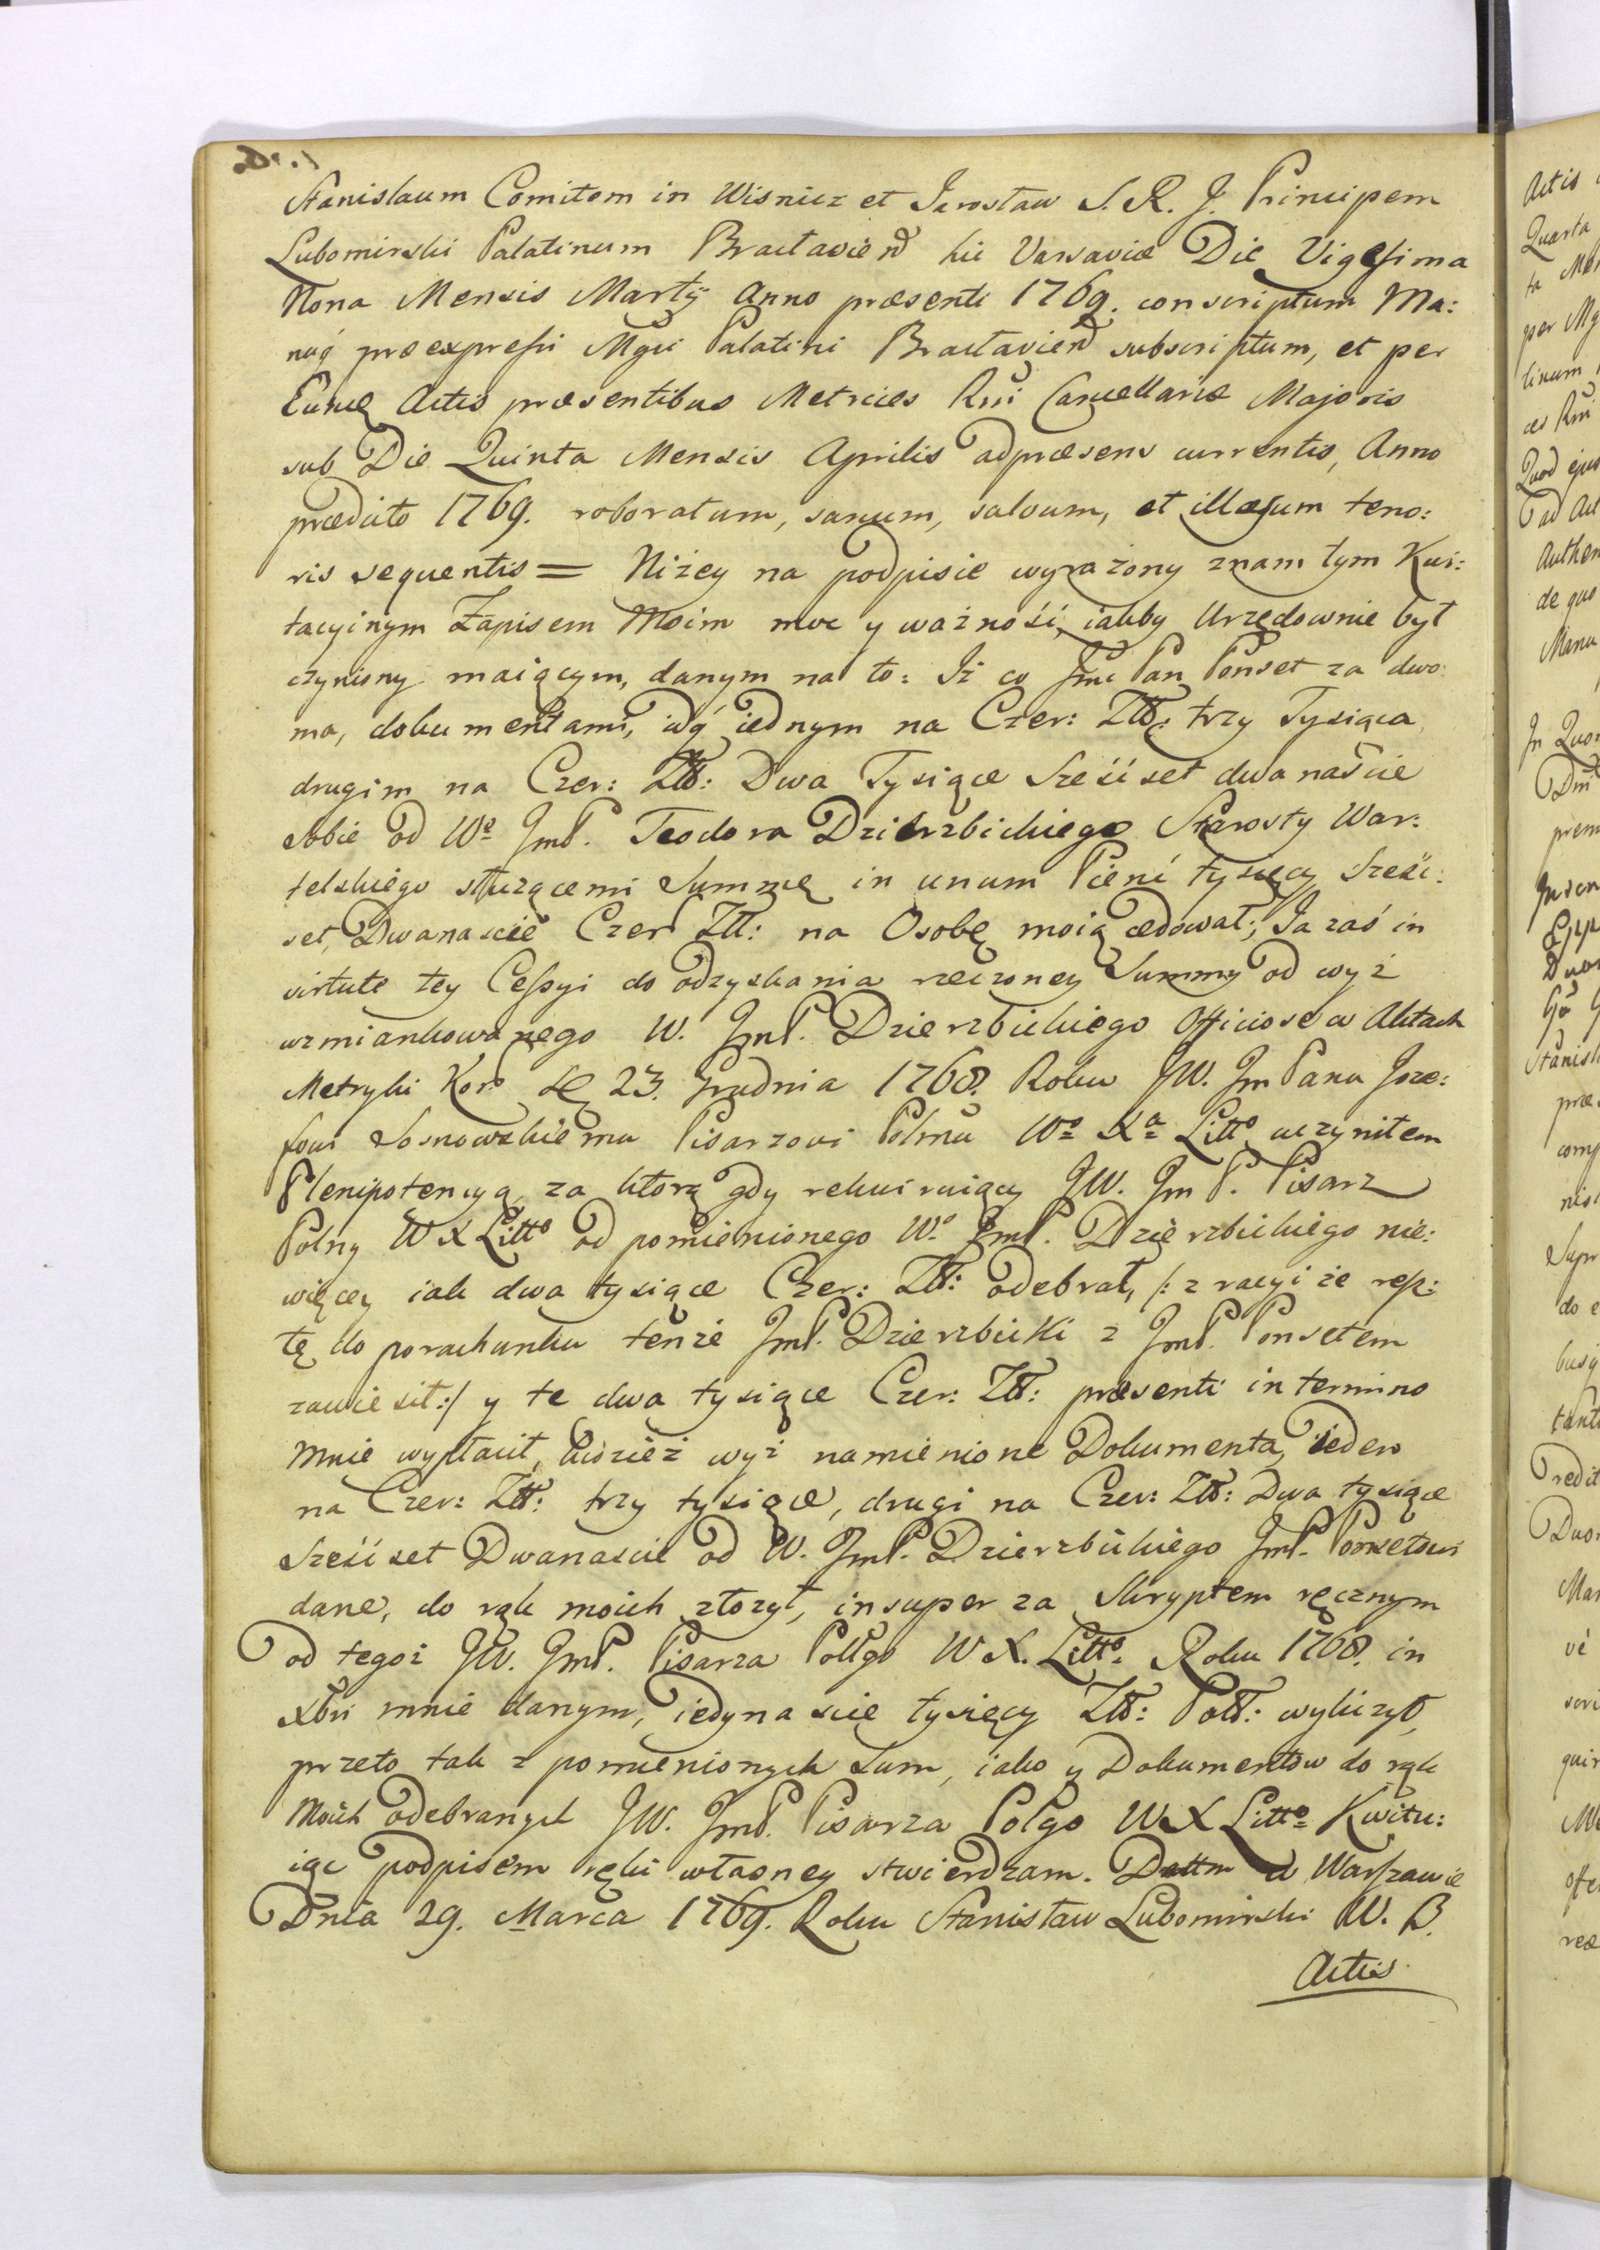 Stanislaum Comitem in Wisnicz et Jarosław S. R. J. Principem
Lubomirski Palatinum Bracłavien hic Varsaviæ Die Vigesima
Nona Mensis Martÿ Anno præsenti 1769. conscriptum Ma:
nuq́ præexpressi Mgci Palatini Bracłavien subscriptum, et per
Eundę Actis præsentibus Metrices Rni Cancellariæ Majoris
sub Die Quinta Mensis Aprilis adpræsens currentis, Anno
prædicto 1769. roboratum, sanum, salvum, et illæsum teno:
ris sequentis = Niżey na podpisie wyrażony znam tym Kwi:
tacyinym Zapisem Moim moc y ważność iakby Urzędownie był
czyniony maiącym, danym na to: Iż co Jmć Pan Ponset za dwo
ma, dokumentami, iednym na Czer: Złł: trzy Tysiąca
drugim na Czer: Złł: Dwa Tysiące Sześćset dwanaście
sobie od Wo JmP. Teodora Dzierzbickiego Starosty War:
telskiego służącemi Summę in unum Pienć tysięcy Sześć:
set, Dwanascie Czer Złł: na Osobę moią cedował; Ja zaś in
virtute tey Cessyi do odzyskania rzeczoney Summy od wyż
wzmiankowanego W. JmP. Dzierzbickiego Officiose w Aktach
Metryki Kor 23. Grudnia 1768. Roku JW. Jm Panu Joze:
fowi Sosnowskiemu Pisarzowi Polmu Wo Xa Litto uczyniłem
Plenipotencyą, za którą gdy rekwiruiący JW. Jm P. Pisarz
Polny W X Litto od pomienionego Wo JmP. Dzierzbickiego nie:
więcey iak dwa tysiące Czer: Złł: odebrał, /: z racyi że resz:
tę do porachunku tenże JmP. Dzierzbicki z JmP. Ponsetem
zawiesił:/ y te dwa tysiące Czer: Złł: præsenti in termino
mnie wypłacił, tudzież wyż namienione Dokumenta, ieden
na Czer: Złł: trzy tysiące, drugi na Czer: Złł: Dwa tysiące
Sześćset Dwanascie od W. JmP. Dzierzbickiego JmP. Ponsetowi
dane, do rąk moich złożył, insuper za Skryptem ręcznym
od tegoż JW. JmP. Pisarza Pollgo W X. Litto Roku 1768. in
Xbri mnie danym, iedynascie tysięcy Złł: Poll: wyliczył,
przeto tak z pomienionych Sum, iako y Dokumentow do rąk
Moich odebranych JW. JmP. Pisarza Polgo W X Litto Kwitu:
iąc podpisem ręki własney stwierdzam. Dattm w Warszawie
Dnia 29. Marca 1769. Roku Stanisław Lubomirski W. B.
Actis